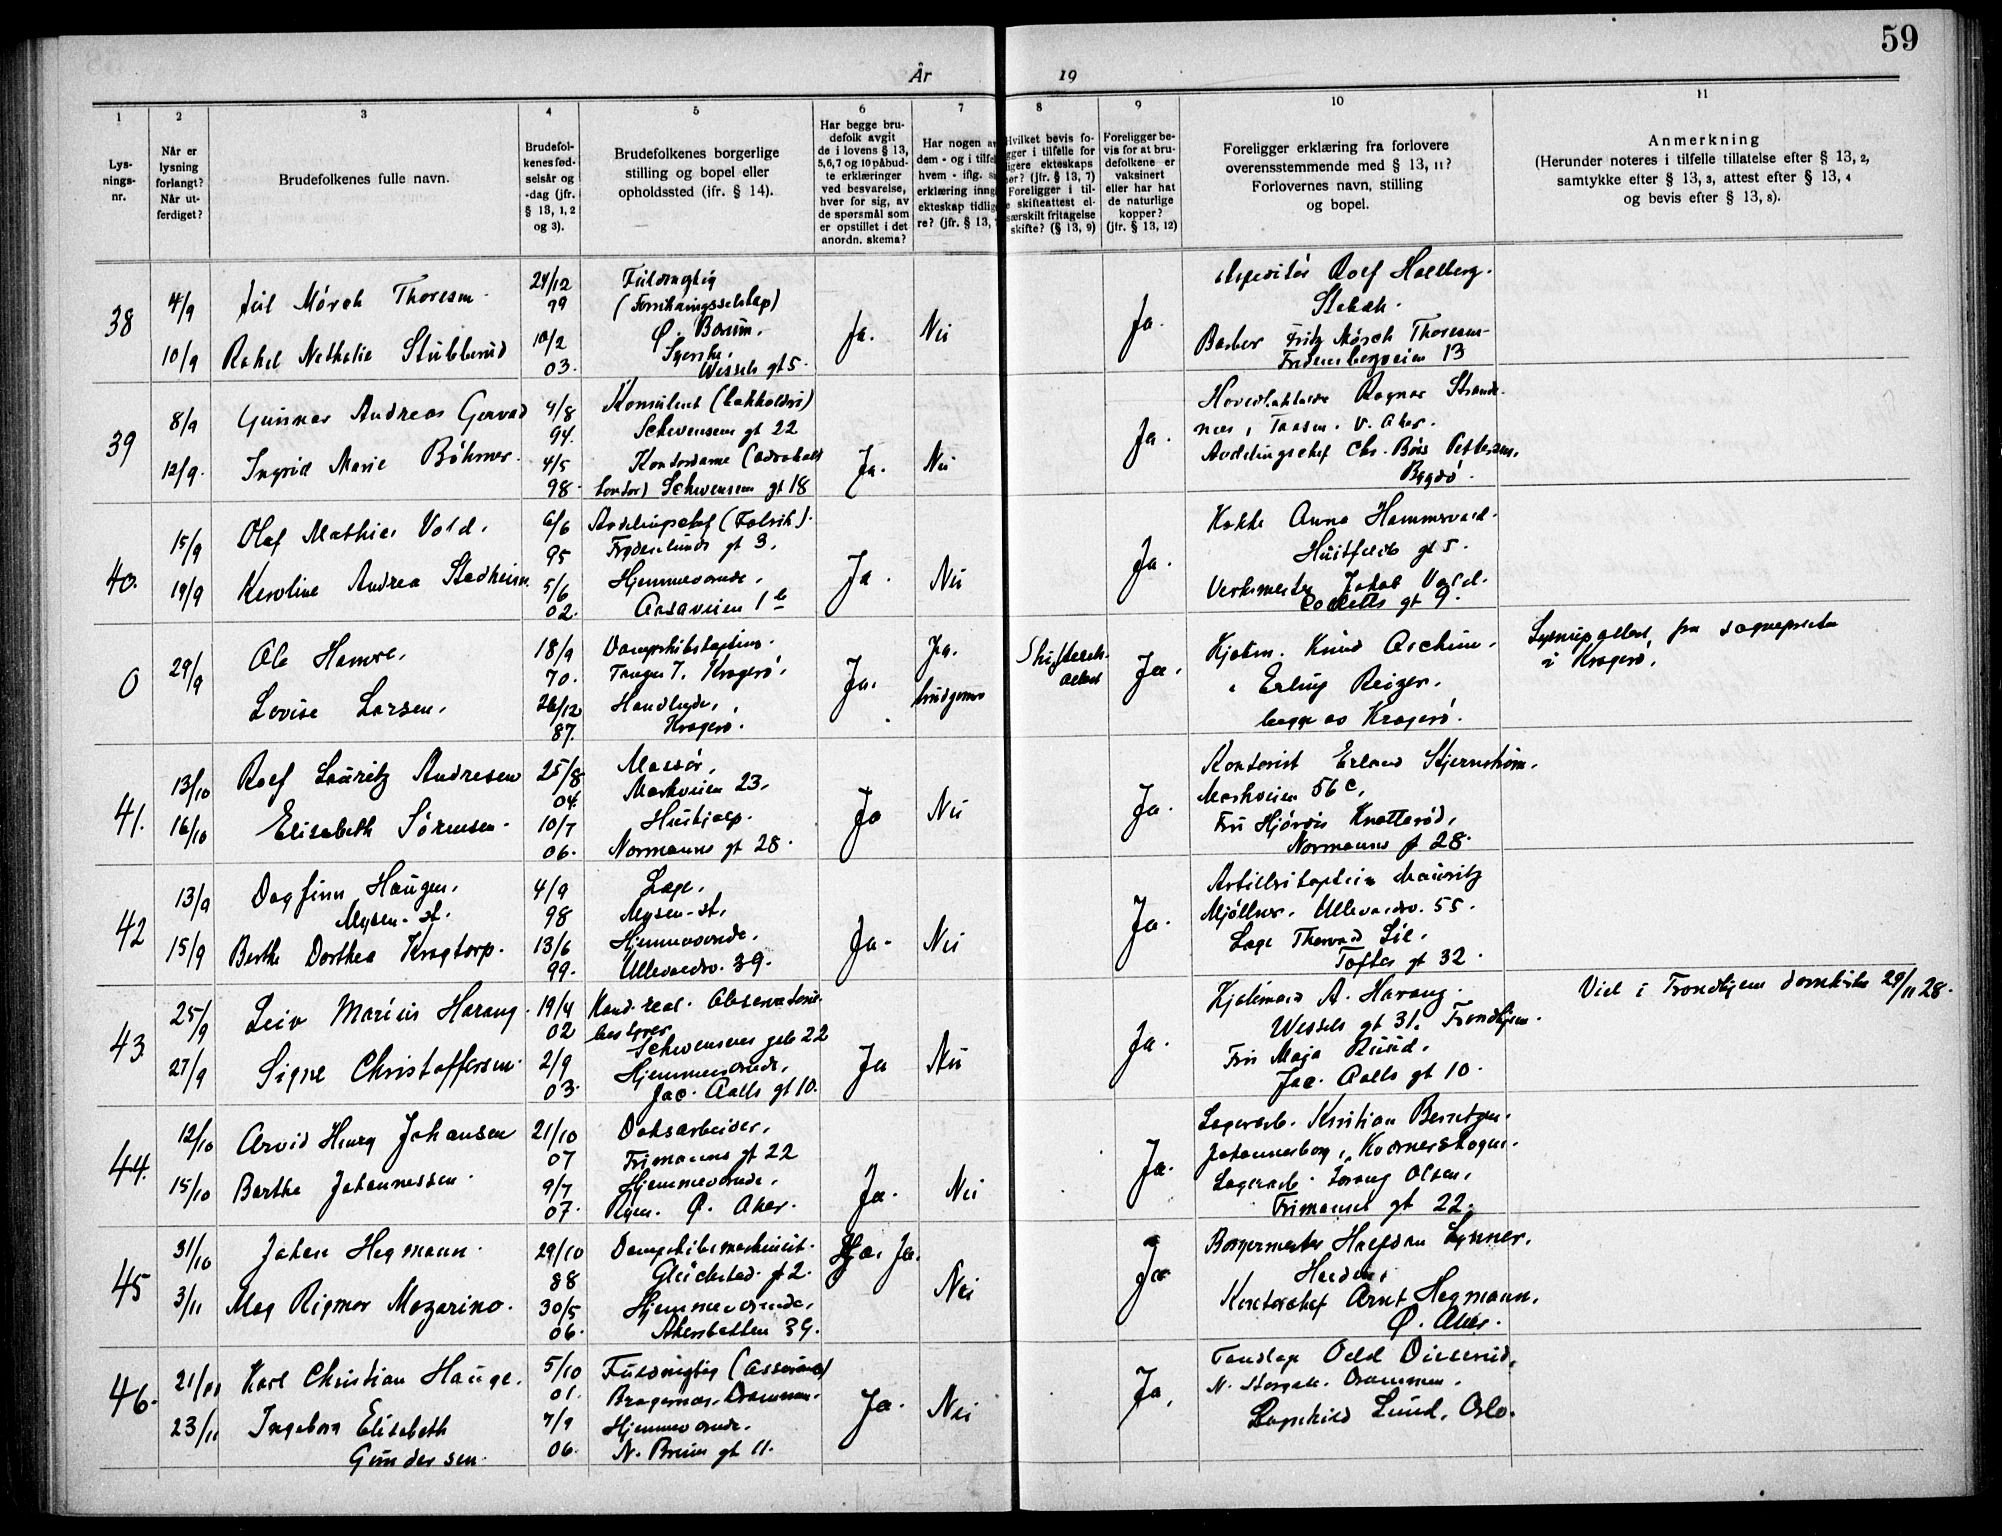 59
År 19
1 2 3 4 5 6 7 8 9 10 11
Lys-
nings-
nr.
Når er
lysning
forlangt?
Når ut-
ferdiget?
Brudefolkenes fulle navn.
Brudefol-
kenes fød-
selsår og
-dag (jfr.
§ 13, 1, 2
og 3).
Brudefolkenes borgerlige
stilling og bopel eller
opholdssted (ifr. § 14).
Har begge bru-
defolk avgit
de i lovens § 13,
5,6,7 og 10 påbud-
te erklæringer
ved besvarelse,
hver for sig, av
de spørsmål som
er opstillet i det
anordn. skema?
Har nogen
dem - og i tilfel
hvem - iflg.
erklæring inng
ekteskap tidlig
re? (jfr. § 13,
Hvilket bevis fo-
gger i tilfelle for
ligere ekteskaps
er? (jfr. § 13, 7)
Foreligger i til-
e skifteattest el-
særskilt fritagelse
skifte? (§ 13, 9)
Foreligger be-
vis for at bru-
defolkene er
vaksinert
eller har hat
de naturlige
kopper?
(jfr. § 13, 12)
Foreligger erklæring fra forlovere
overensstemmende med § 13, 11?
Forlovernes navn, stilling
og bopel.
Anmerkning
(Herunder noteres i tilfelle tillatelse efter § 13, 2,
samtykke efter § 13, 3, attest efter § 13, 4
og bevis efter § 13, 8).
38
4/9
10/9
Mørch Thoresen
Rakel Nathalie Stubberud
24/12
99
10/2
03.
Fuldmægtig
(Forsikringsselskap)
Ø. Bærum.
Syerske.
Wessels gt 5.
Ja.
Nei
Ja.
Ekspeditør Rolf Hallberg.
Stabæk.
Barber Fritz Mørch Thoresen
Fredensborgveien 13
39
8/9
12/9.
Gunnar Andreas Gervad
Ingrid Marie Böhmer.
4/8
94.
4/5
98.
Konsulent
Schwensens gt 22
Kontordame (advokat
kontor) Schwensens gt 18
Ja.
Nei
Ja.
Ragnar Strande-
næs, Taasen. V. Aker.
Avdelingschef Chr. Pettersen,
Bygdø.
40.
15/9
19/9
Olaf Mathias Vold.
Karoline Andrea Stadheim
6/6
95
5/6
02.
Avdelingschef (Fabrik).
Frydenlunds gt 3.
Hjemmeværende.
Aasaveien 1 b
Ja.
Nei
Ja.
Kokke Anna Hammervold.
Huitfeldts gt 5.
Verksmester Jakob Vold.
Colletts gt 9.
0
29/9
Ole Hamre.
Lovise Larsen.
18/9
70.
26/12
87.
Dampskibskaptein.
Tangen 7. Kragerø.
Handlende,
Kragerø.
Ja.
Ja.
brudgommen
Skifteret-
attest
Ja.
Kjøbm. Knud
" Erling Reizer.
begge av Kragerø.
Lysningsattest fra sognepresten
i Kragerø.
41.
13/10
16/10
Rolf Lauritz Andresen
Elisabeth Sørensen.
25/8
04.
10/7
06.
Massør,
Markveien 23.
Hushjelp.
Normanns gt 28.
Ja
Nei
Ja.
Kontorist Erland Stjernstrøm.
Markveien 56 c,
Fru Hjørdis Knatterød,
Normanns gt 28.
42
13/9
15/9
Dagfinn Haugen,
Mysen-st.
Berthe Dorthea Krogtorp.
4/9
98
13/6
99.
Læge.
Mysen-st,
Hjemmeværende.
Ullevaalsv. 39.
Ja.
Nei
Ja.
Artillerikaptein Mauritz
Mjøllner. Ullevaalsv. 55.
Læge Thorvald Lie.
Toftes gt 32.
43
25/9
27/9
Leiv Marius Harang.
Signe Christoffersen.
19/4
02
2/9
03.
Kand. real. Observatorie-
bestyrer
Schwensens gate 22
Hjemmeværende.
Jac. Aalls gt 10.
Ja
Nei
Ja.
Kjøbmand A. Harang.
Wessels gt 31. Trondhjem.
Fru Maja Ruud.
Jac. Aalls gt 10.
Viet i Trondhjem domkirke 29/11 28.
44.
12/10
15/10
Arvid Henry Johansen
Berthe Johannessen.
21/10
07
9/7
07.
Doksarbeider,
Frimanns gt 22
Hjemmeværende.
Ryen. Ø. Aker.
Ja.
Nei
Ja.
Lagerarb. Kristian Berntzen.
Johannesborg, Kværnerskogen.
Lagerarb. Olsen,
Frimanns gt 22.
45
31/10
3/11
Johan Hegmann.
Mag Rigmor Mazarino.
29/10
88
30/5
06.
Dampskibsmaskinist.
Glückstad. gt 2.
Hjemmeværende,
Akersbakken 39.
Ja.
Nei
Ja
Borgermester Halfdan Lynner.
Halden,
Kontorchef Arnt Hegmann,
Ø. Aker.
46.
21/11
23/11
Karl Christian Hauge.
Ingeborg Elisabeth
Gundersen.
5/10
01.
7/9
06.
Fuldmægtig (assurance)
Bragernes, Drammen.
Hjemmeværende.
N. Bruns gt 11.
Ja.
Nei
Ja.
Tandlæge Odd Disserud,
N. Storgate. Drammen.
Ragnhild Lund. Oslo.